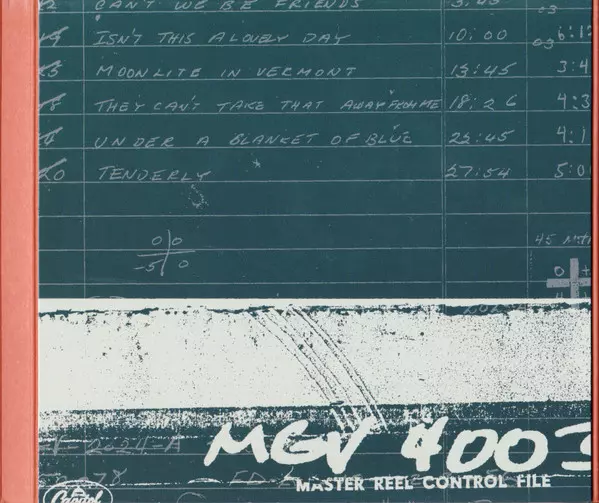 CAN'T WE BE FRIENDS
ISN'T THIS A LOVELY DAY 10:00 6:1
MOONLITE IN VERMONT 13:45 3:4
THEY CAN'T TAKE THAT AWAY FROM ME 18:26 4:3
UNDER A BLANKET OF BLUE 22:45 4:1
20 TENDERLY 27:54 5:0
0 0
-5 0
45
0 +
MGV 4003
MASTER REEL CONTROL FILE
Capitol